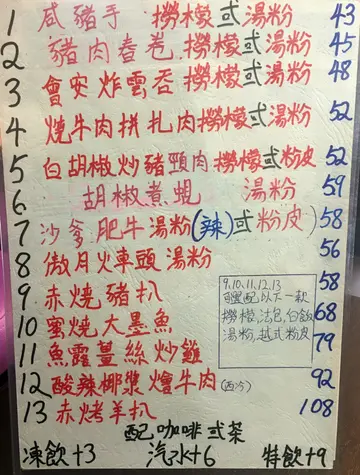 1 咸豬手 撈檬或湯粉 43
2 豬肉春卷 撈檬或湯粉 45
3 會安炸雲吞 撈檬或湯粉 48
4 燒牛肉拼扎肉撈檬或湯粉 52
5 白胡椒炒豬頸肉撈檬或粉皮 52
6 胡椒煮蜆 湯粉 59
7 沙爹肥牛湯粉(辣)或粉皮 58
8 傲月火車頭 湯粉 56
9 赤燒豬扒 58
10 蜜燒大墨魚 68
11 魚露薑絲炒雞 79
12 酸辣椰漿燴牛肉(西冷) 92
13 赤烤羊扒 108
9,10,11,12,13
配以下一款
撈檬,法包,白飯
湯粉,越式粉皮
配咖啡或茶
凍飲+3 汽水+6 特飲+9